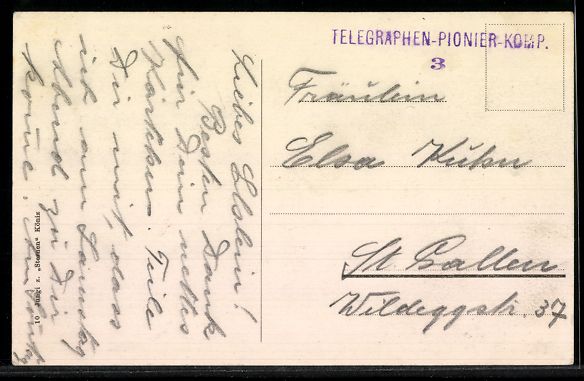 TELEGRAPHEN-PIONIER-KOMP.
3
Fräulein
Elsa Kuhn
St. Gallen
Wildeggstr. 37
Liebes Elslein!
Besten Dank
für Dein nettes
Kärtchen. Teile
Dir mit, dass
ich am Samstag
Abend zu Dir
komme.
10 Jungi z. „Sternen“ Köniz